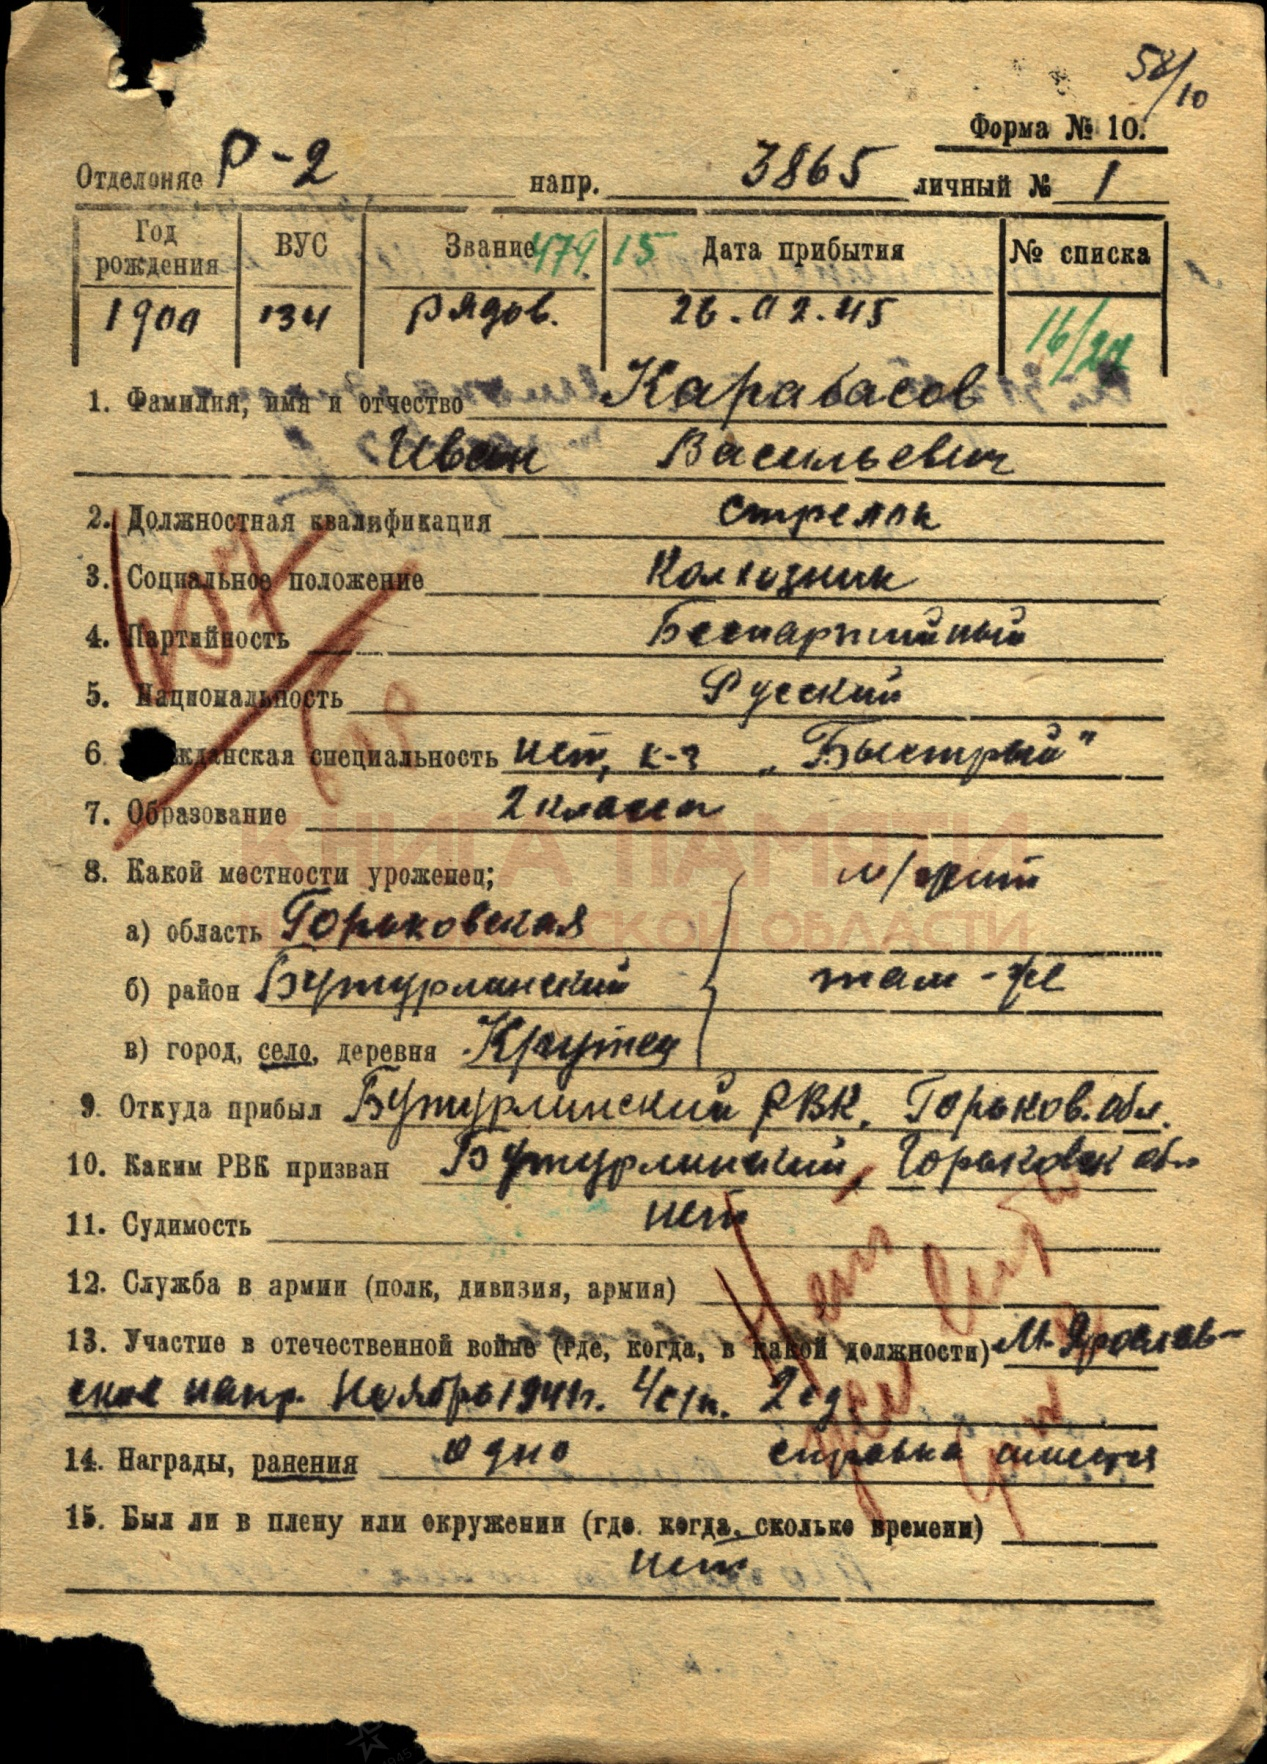 58/10
Форма № 10.
Отделение Р-2 напр. 3865 личный № 1
Год рождения ВУС Звание 479 15 Дата прибытия № списка
1900 134 рядов. 26.02.45 16/
1. Фамилия, имя и отчество Карабасов
Иван Васильевич
2. Должностная квалификация стрелок
3. Социальное положение Колхозник
4. Партийность Беспартийный
5. Национальность Русский
6 жданская специальность нет, к-з „Быстрый"
7. Образование 2 класса
КНИГА ПАМЯТИ
8. Какой местности уроженец; м/жит
а) область Горьковская
ОБЛАСТИ
б) район Бутурлинский там-же
в) город, село, деревня Крутец
9. Откуда прибыл Бутурлинский РВК, Горьков. обл.
10. Каким РВК призван Бутурлинский, Горьковск обл
11. Судимость нет
12. Служба в армии (полк, дивизия, армия)
13. Участие в отечественной войне (где, когда, в какой должности) М. Ярослав-
ское напр. Ноябрь 1941г. 4 с/п. 2 сд.
14. Награды, ранения одно справка имеется
15. Был ли в плену или окружении (где, когда, сколько времени)
нет